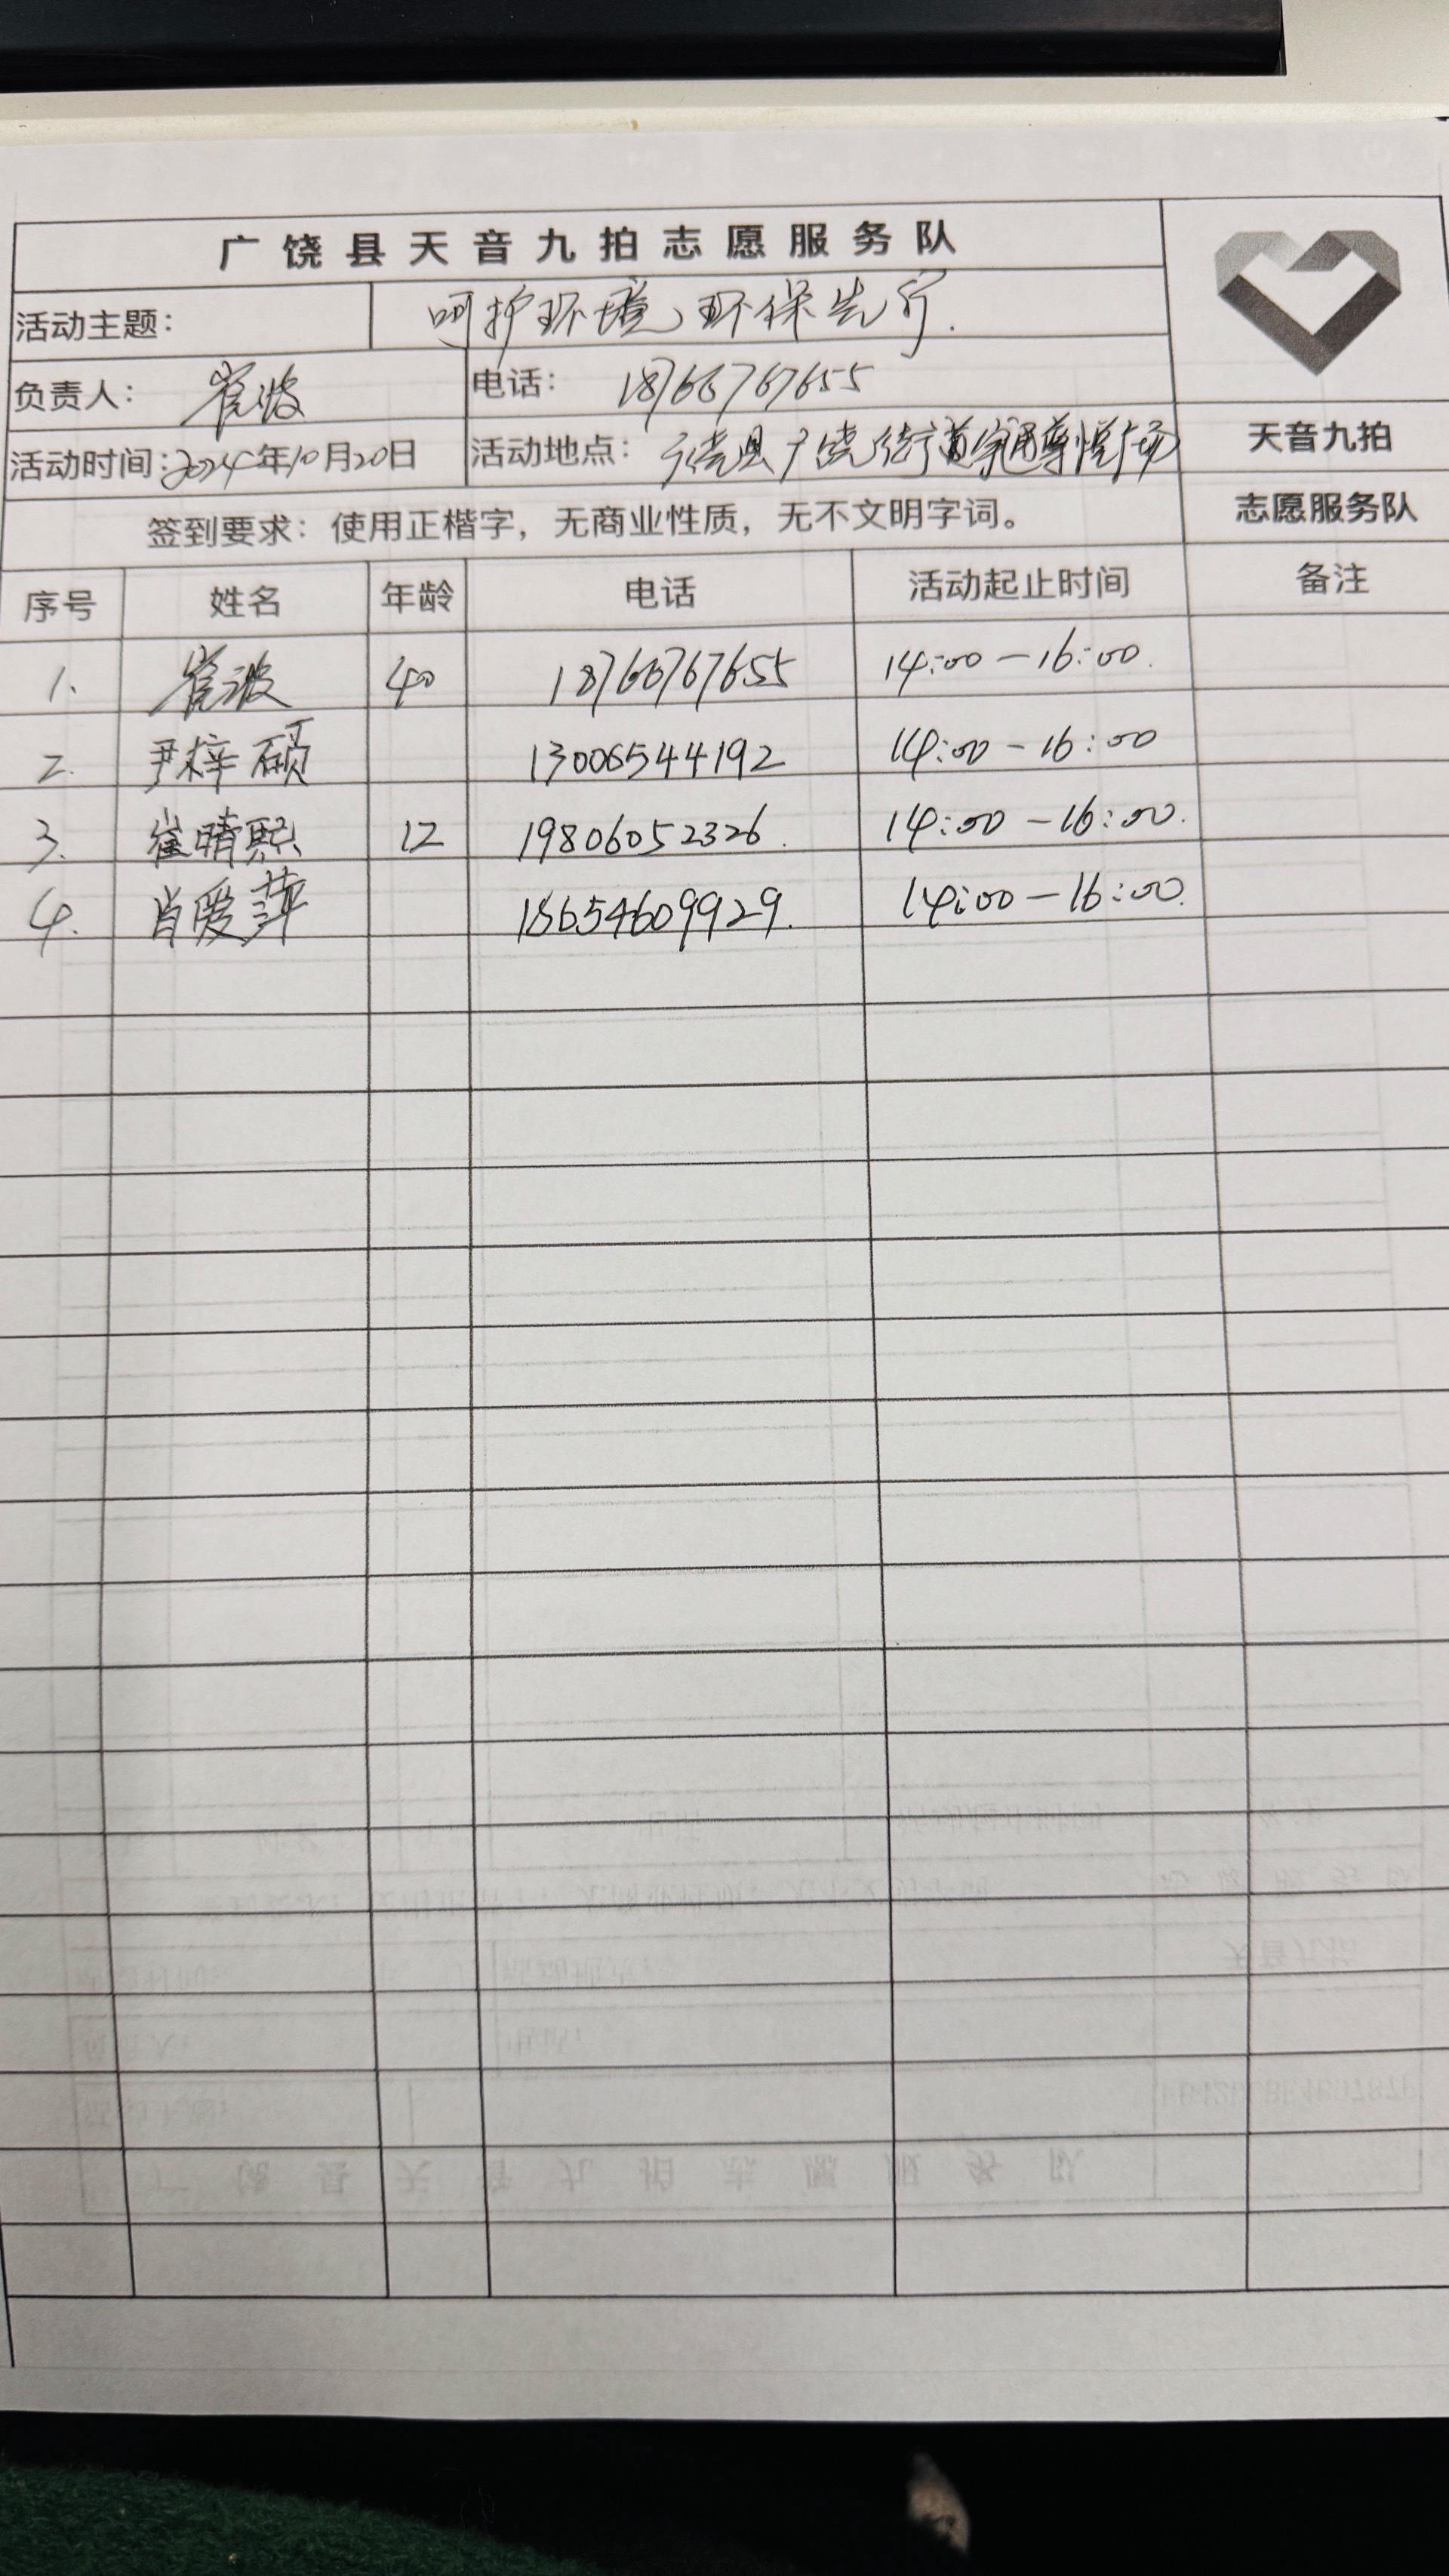 广饶县天音九拍志愿服务队
活动主题: 呵护环境,环保先行.
负责人: 崔波 电话: 18766767655
天音九拍
活动时间:2024年10月20日 活动地点: 广饶县广饶街道尊悦广场
志愿服务队
签到要求:使用正楷字,无商业性质,无不文明字词。
序号 姓名 年龄 电话 活动起止时间 备注
1. 崔波 40 18766767655 14:00-16:00.
2. 尹梓硕 13006544192 14:00-16:00
3. 崔晴熙 12 19806052326. 14:00-16:00.
4. 肖爱萍 18654609929. 14:00-16:00.